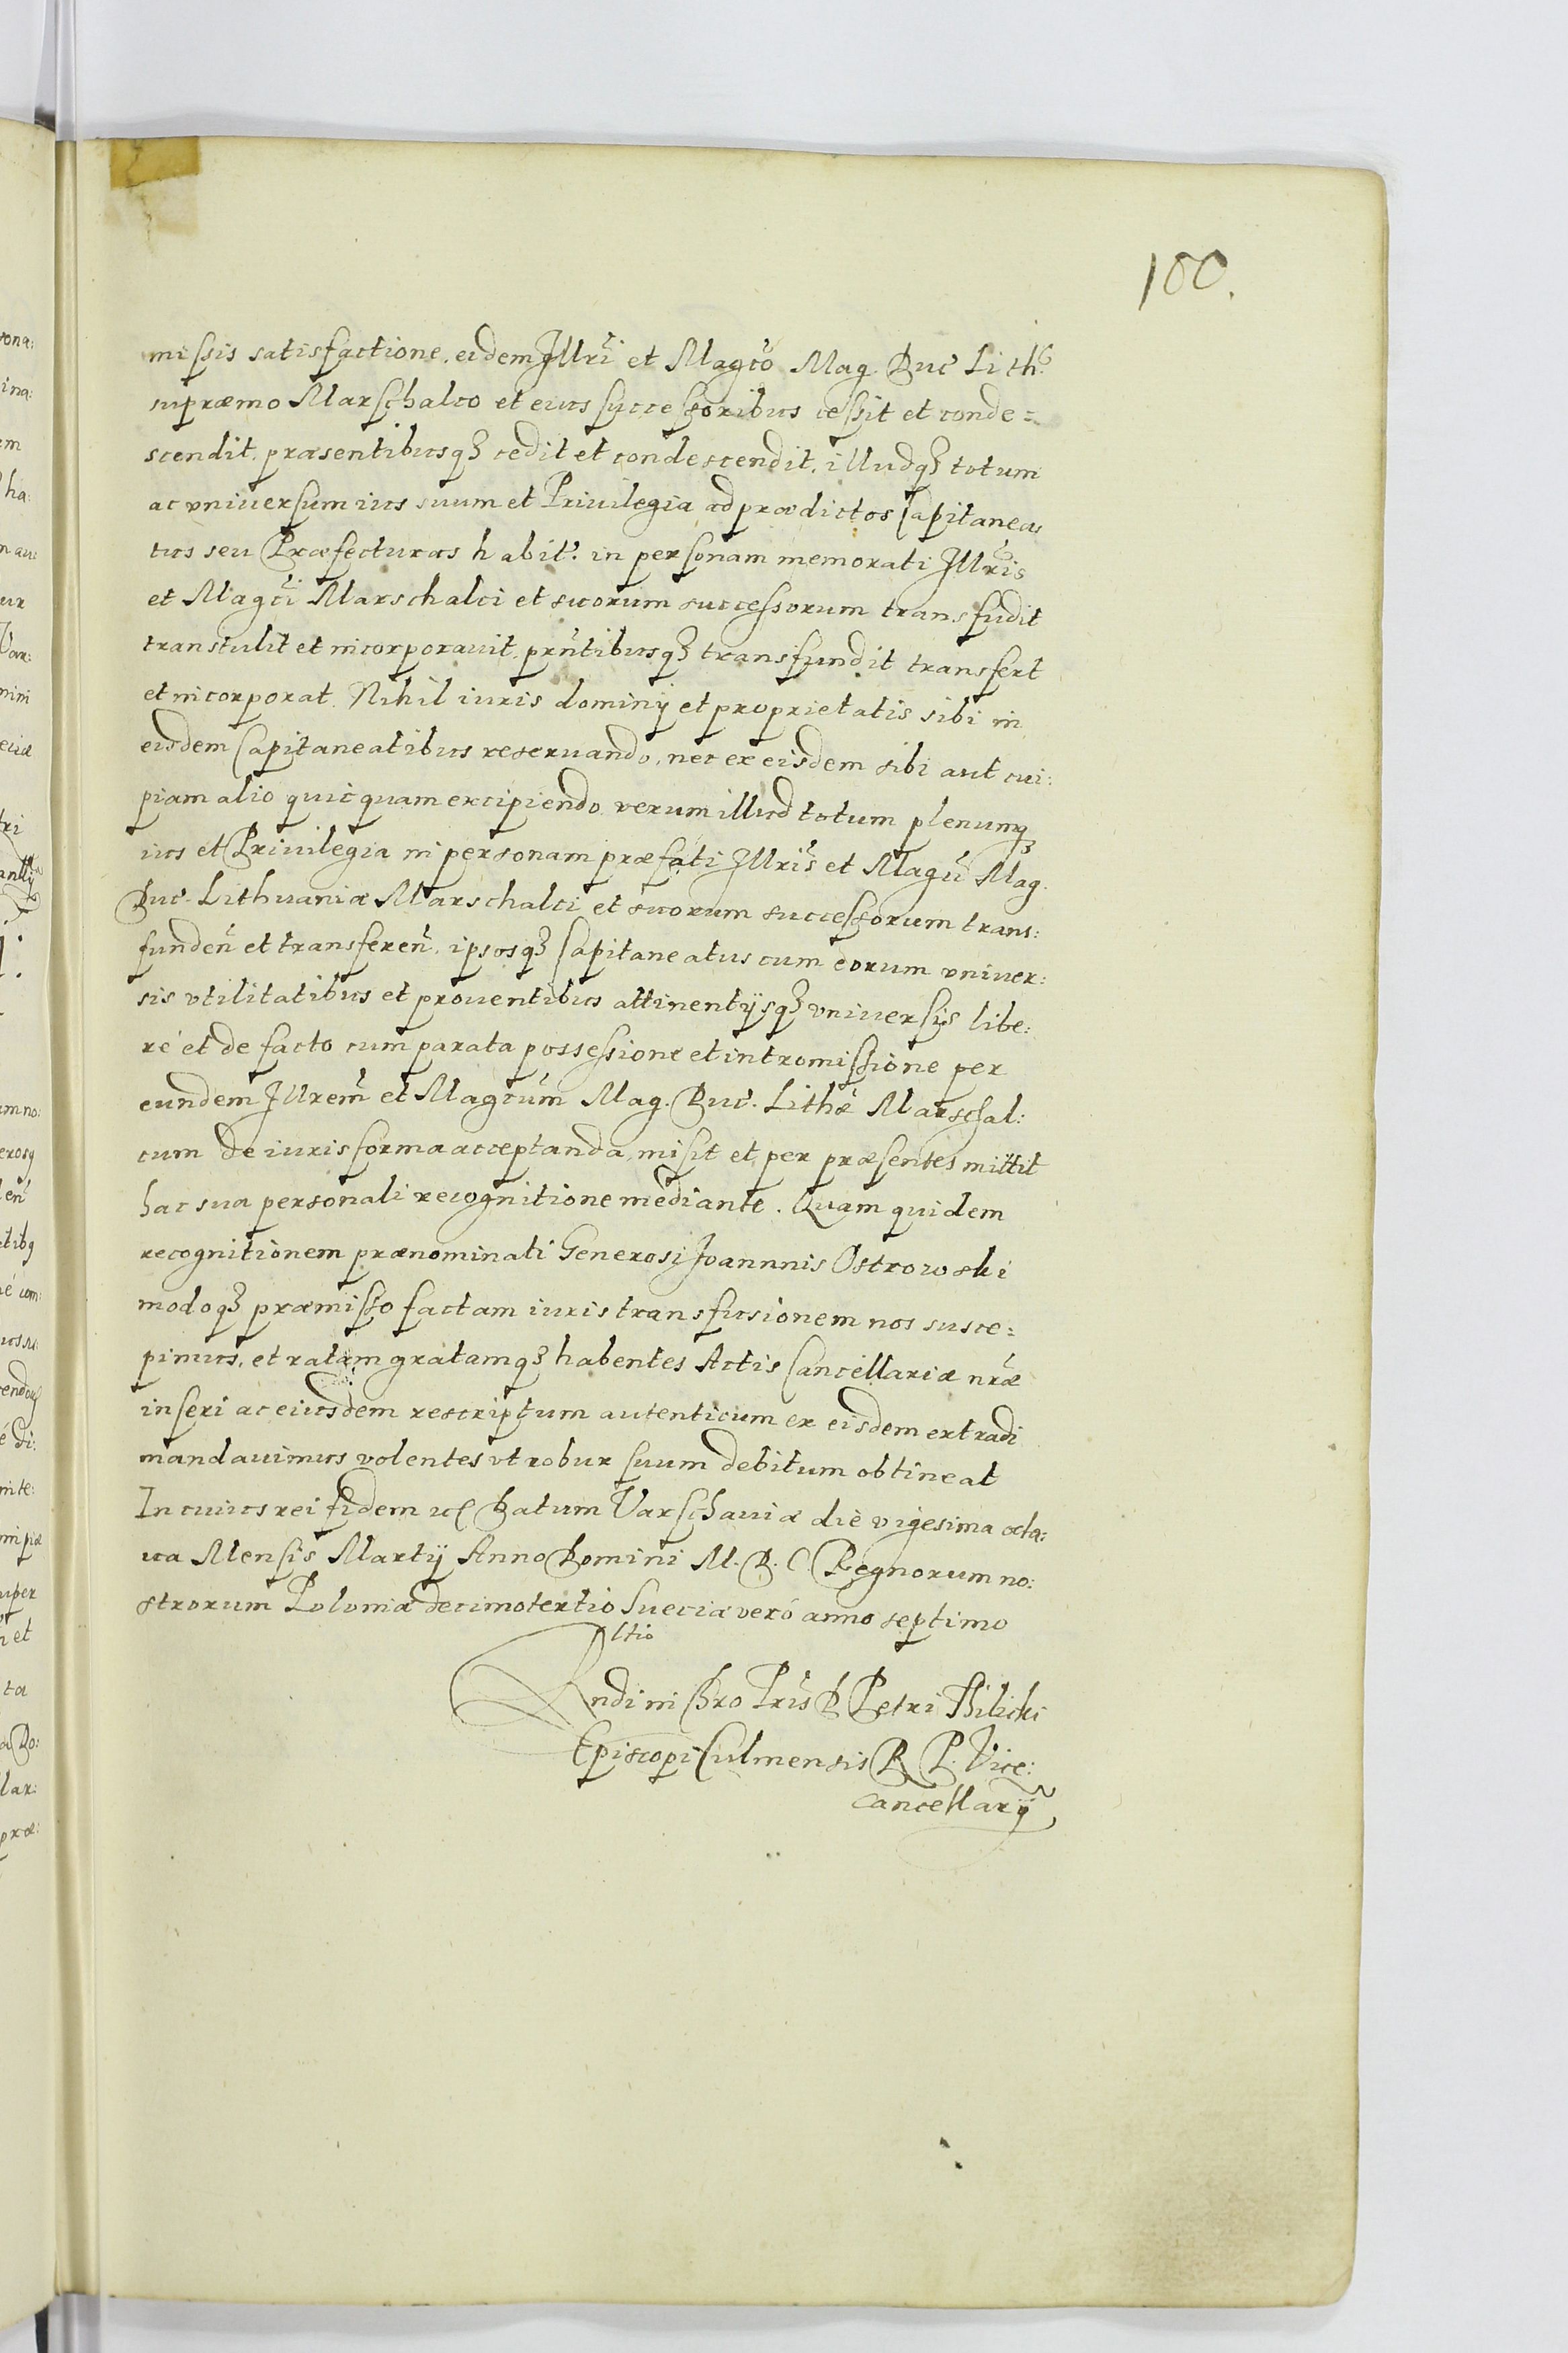 100.
missis satisfactione, eidem Illri et Magco Mag. Duc Lith.
supræmo Marschalco et eius successoribus cessit et conde=
scendit, præsentibusqȝ cedit et condescendit, illudqȝ totum
ac vniuersum ius suum et Priuilegia ad prædictos Capitanea
tus seu Præfecturas habit. in personam memorati Illris
et Magci Marschalci et suorum successorum transfudit
transtulit et incorporauit, prntibusqȝ transfundit transfert
et incorporat. Nihil iuris dominij et proprietatis sibi in
eisdem Capitaneatibus reseruando, nec ex eisdem sibi aut cui:
piam alio quicquam excipiendo verum illud totum plenumqȝ
ius et Priuilegia in personam præfati Illris et Magci Mag.
Duc. Lithuaniæ Marschalci et suorum successorum trans:
funden et transferen, ipsosqȝ Capitaneatus cum eorum vniuer:
sis vtilitatibus et prouentibus attinentijsqȝ vniuersis libe:
ré et de facto cum parata possessione et intromissione per
eundem Illrem et Magcum Mag. Duc. Lithæ Marschal:
cum de iuris forma acceptanda, misit et per præsentes mittit
hac sua personali recognitione mediante. Quam quidem
recognitionem prænominati Generosi Joannnis Ostrowski
modoqȝ præmisso factam iuris transfusionem nos susce=
pimus, et ratam gratamqȝ habentes Actis Cancellariæ nræ
inseri ac eiusdem rescriptum autenticum ex eisdem extradi
mandauimus volentes vt robur suum debitum obtineat
In cuius rei fidem Datum Varschauiæ die vigesima octa:
ua Mensis Martij Anno Domini M. D. C Regnorum no:
strorum Poloniæ decimotertio Sueciæ veró anno septimo
Rndi in Chro Pris D Petri Tilicki
Episcopi Culmensis R P. Vice:
cancellarij